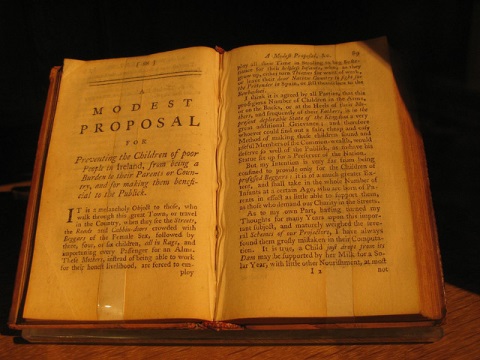 A
MODEST
PROPOSAL
FOR
Preventing the Children of poor
People in Ireland, from being a
Burden to their Parents or Coun-
try, and for making them benefi-
cial to the Publick.
IT is a melancholy Object to those, who
walk through this great Town, or travel
in the Country, when they see the Streets,
the Roads and Cabbin-doors crowded with
Beggars of the Female Sex, followed by
three, four, or six children, all in Rags, and
importuning every Passenger for an Alms.
These Mothers, instead of being able to work
for their honest livelihood, are forced to em-
ploy
A Modest Proposal, &c.
ploy all their Time in
for their helpless Infants; who, as they
grow up, either turn Thieves for want of work,
or leave their dear Native Country to fight for
the Pretender in Spain, or sell themselves to the
Barbadoes.
I think it is agreed by all Parties, that this
prodigious Number of Children in the Arms,
or on the Backs, or at the Heels of their Mo-
thers, and frequently of their Fathers, is in the
present deplorable State of the Kingdom a very
great additional Grievance; and therefore
whoever could find out a fair, cheap and easy
Method of making these children sound and
useful Members of the Common-wealth, would
deserve so well of the Publick, as to have his
Statue set up for a Preserver of the Nation.
But my Intention is very far from being
confined to provide only for the Children of
professed Beggars: it is of a much greater Ex-
tent, and shall take in the whole Number of
Infants at a certain Age, who are born of Pa-
rents in effect as little able to support them,
as those who demand our Charity in the Streets.
As to my own Part, having turned my
Thoughts for many Years upon this impor-
tant Subject, and maturely weighed the seve-
ral Schemes of our Projectors, I have always
found them grossly mistaken in their Computa-
tion. It is true, a Child just dropt from its
Dam may be supported by her Milk for a So-
lar Year, with little other Nourishment, at most
I 2
not